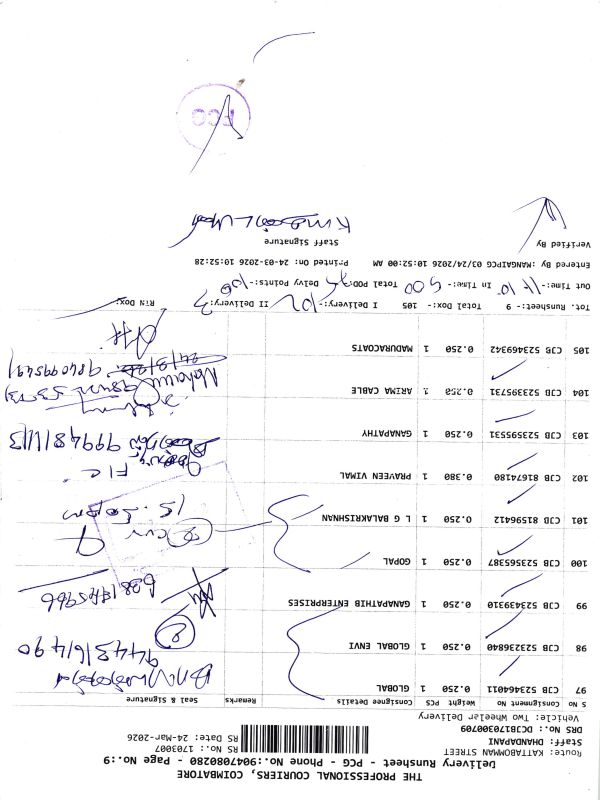 THE PROFESSIONAL COURIERS, COIMBATORE
Delivery Runsheet - PCG - Phone No.:9047080280 - Page No.:9
Route: KATTABOMMAN STREET
Staff: DHANDAPANI RS No.: 1703007
DRS No.: DCJB170300709 RS Date: 24-Mar-2026
Vehicle: Two Wheeler Delivery
S No Consignment No Weight PCS Consignee Details Remarks Seal & Signature
97 CJB 523464011 0.250 1 GLOBAL
98 CJB 523236840 0.250 1 GLOBAL ENVI 9443161490
2
99 CJB 523439310 0.250 1 GANAPATHIB ENTERPRISES
100 CJB 523565387 0.250 1 GOPAL
101 CJB 81596412 0.250 1 L G BALAKRISHNAN 15.50pm
102 CJB 71674180 0.380 1 PRAVEEN VIMAL
103 CJB 523595531 0.250 1 GANAPATHY 9994811113
104 CJB 523395731 0.250 1 ARIMA CABLE
105 CJB 523469342 0.250 1 MADURACOATS 24/3/26
Tot. Runsheet:- 9 Total Dox:- 105 I Delivery:- 102 II Delivery:- 3 RTN Dox:
Out Time:- In Time:- POD: Total Delvy Points:-
Entered By :MANGAIPCG 03/24/2026 10:52:00 AM Printed On: 24-03-2026 10:52:28
Verified By Staff Signature
PCG